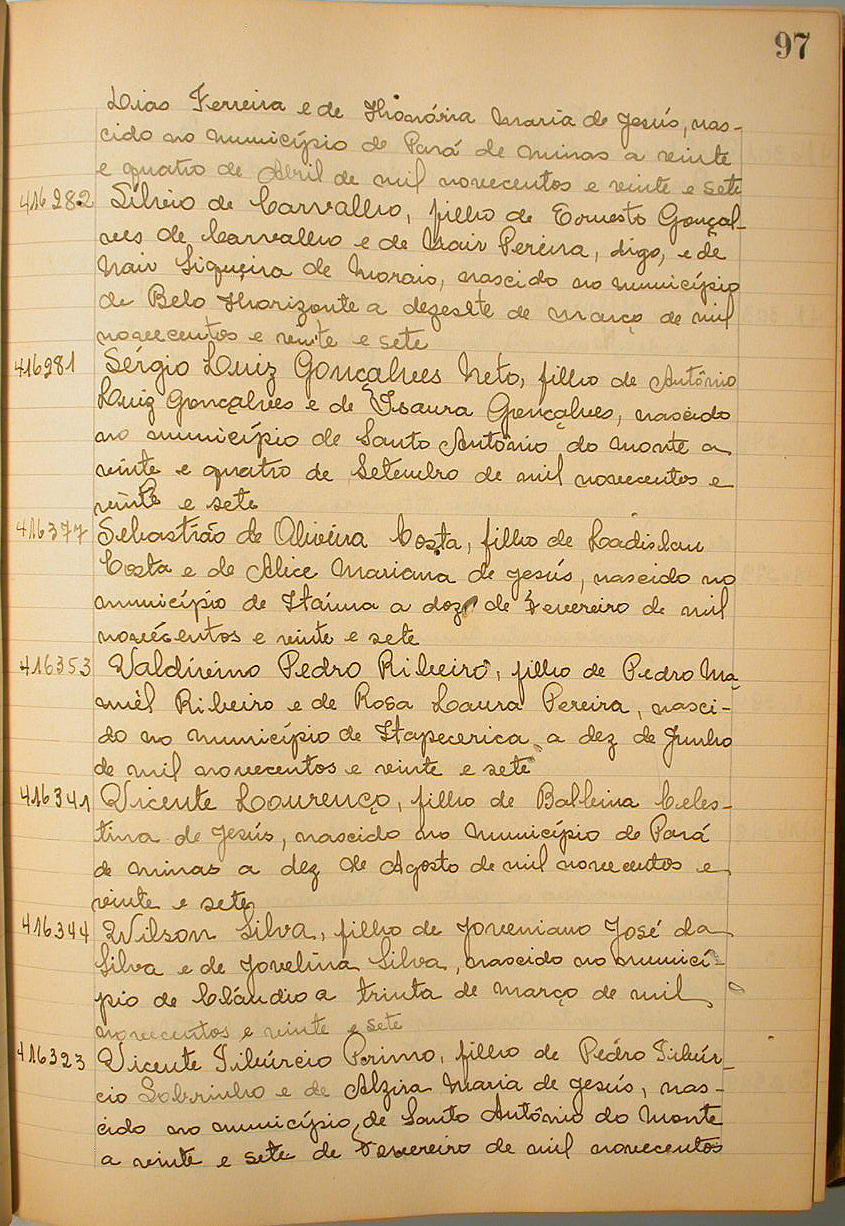 97
Dias Ferreira e de Honória Maria de Jesús, nas-
cido no município de Pará de Minas a vinte
e quatro de Abril de mil novecentos e vinte e sete
416282 Silvio de Carvalho, filho de Ernesto Gonçal-
ves de Carvalho e de Nair Pereira, digo, e de
Nair Siqueira de Morais, nascido no município
de Belo Horizonte a dezesete de março de mil
novecentos e vinte e sete
416281 Sérgio Luiz Gonçalves Neto, filho de Antônio
Luiz Gonçalves e de Isaura Gonçalves, nascido
no município de Santo Antônio do Monte a
vinte e quatro de Setembro de mil novecentos e
vinte e sete
416377 Sebastião de Oliveira Costa, filho de Ladislau
Costa e de Alice Mariana de Jesús, nascido no
município de Itaúna a doze de Fevereiro de mil
novecentos e vinte e sete
416353 Valdivino Pedro Ribeiro, filho de Pedro Ma-
nuel Ribeiro e de Rosa Laura Pereira, nasci-
do no município de Itapecerica a dez de Junho
de mil novecentos e vinte e sete
416341 Vicente Lourenço, filho de Balbina Celes-
tina de Jesús, nascido no município de Pará
de Minas a dez de Agosto de mil novecentos e
vinte e sete
416344 Wilson Silva, filho de Joveniano José da
Silva e de Jovelina Silva, nascido no municí-
pio de Cláudio a trinta de março de mil
novecentos e vinte e sete
416323 Vicente Tibúrcio Primo, filho de Pedro Tibúr-
cio Sobrinho e de Alzira Maria de Jesús, nas-
cido no município de Santo Antônio do Monte
a vinte e sete de Fevereiro de mil novecentos